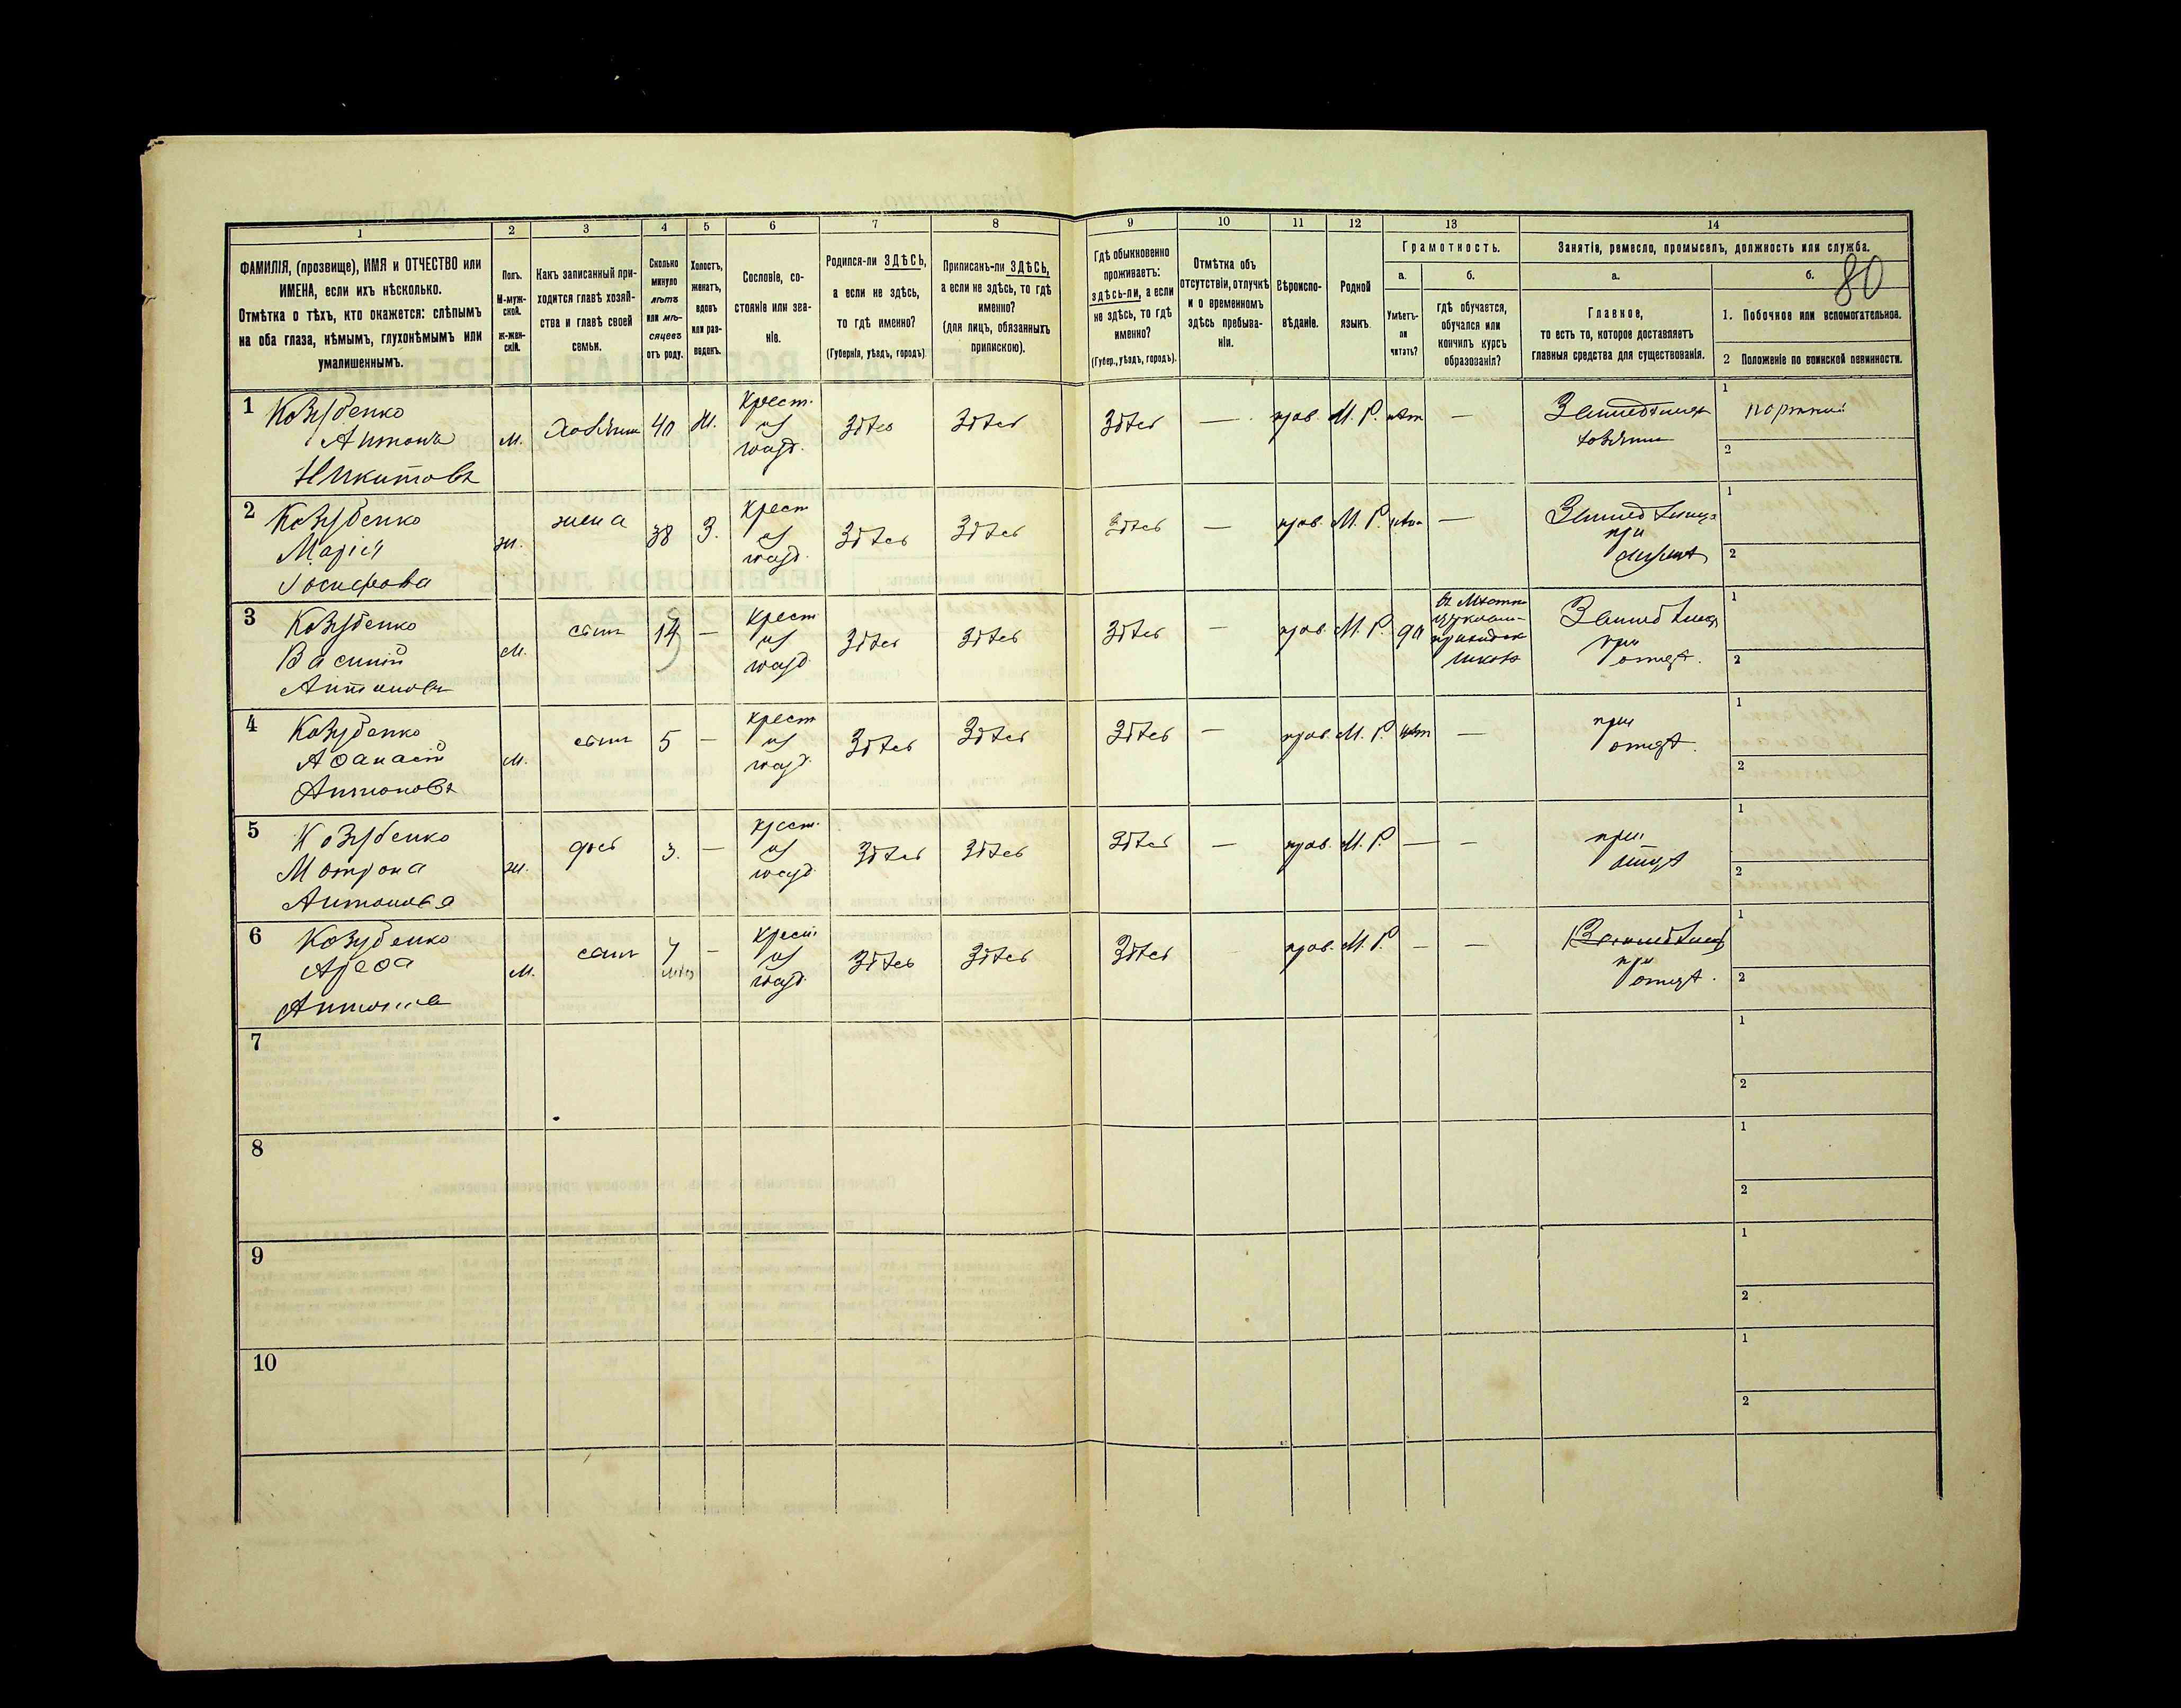 1 2 3 4 5 6 7 8 9 10 11 12 13 14
ФАМИЛІЯ, (прозвище), ИМЯ и ОТЧЕСТВО или
ИМЕНА, если ихъ нѣсколько.
Отмѣтка о тѣхъ, кто окажется: слѣпымъ
на оба глаза, нѣмымъ, глухонѣмымъ или
умалишеннымъ.
Полъ.
М-муж-
ской.
Ж-жен-
скій.
Какъ записанный при-
ходится главѣ хозяй-
ства и главѣ своей
семьи.
Сколько
минуло
лѣтъ
или мѣ-
сяцевъ
отъ роду.
Холостъ,
женатъ,
вдовъ
или раз-
веденъ.
Сословіе, со-
стояніе или зва-
ніе.
Родился-ли ЗДѢСЬ,
а если не здѣсь,
то гдѣ именно?
(Губернія, уѣздъ, городъ).
Приписанъ-ли ЗДѢСЬ,
а если не здѣсь, то гдѣ
именно?
(для лицъ, обязанныхъ
припискою).
Гдѣ обыкновенно
проживаетъ:
здѣсь-ли, а если
не здѣсь, то гдѣ
именно?
(Губер., уѣздъ, городъ).
Отмѣтка объ
отсутствіи, отлучкѣ
и о временномъ
здѣсь пребыва-
ніи.
Вѣроиспо-
вѣданіе.
Родной
языкъ.
Грамотность.
а.
Умѣетъ-
ли
читать?
б.
гдѣ обучается,
обучался или
кончилъ курсъ
образованія?
Занятія, ремесло, промыселъ, должность или служба.
а.
Главное,
то есть то, которое доставляетъ
главныя средства для существованія.
б.
80
1. Побочное или вспомогательное.
2 Положеніе по воинской повинности.
1 Козубенко
Антонъ
Никитовъ
м. 40 Ж.
Крест.
из
здѣсь здѣсь здѣсь — прав. М. Р. нѣт —
1
2
2 Козубенко
Марія
Іосифова
ж. жена 38 З.
Крест
из
здѣсь здѣсь здѣсь — прав. М. Р. —
при
1
2
3 Козубенко
Василій
Антоновъ
м. сынъ 14 —
Крест
из
здѣсь здѣсь здѣсь — прав. М. Р. да
при
отцѣ.
1
2
4 Козубенко
Аѳанасій
Антоновъ
м. сынъ 5 —
Крест
из
здѣсь здѣсь здѣсь — прав. М. Р. нѣт —
при
отцѣ.
1
2
5 Козубенко
Мотрона
Антонова
ж. дочь 3. —
Крест.
из
здѣсь здѣсь здѣсь — прав. М. Р. — —
при
отцѣ
1
2
6 Козубенко
Антоновъ
м. сынъ —
Крест
из
здѣсь здѣсь здѣсь прав. М. Р. — —
при
отцѣ.
1
2
7
1
2
8
1
2
9
1
2
10
1
2